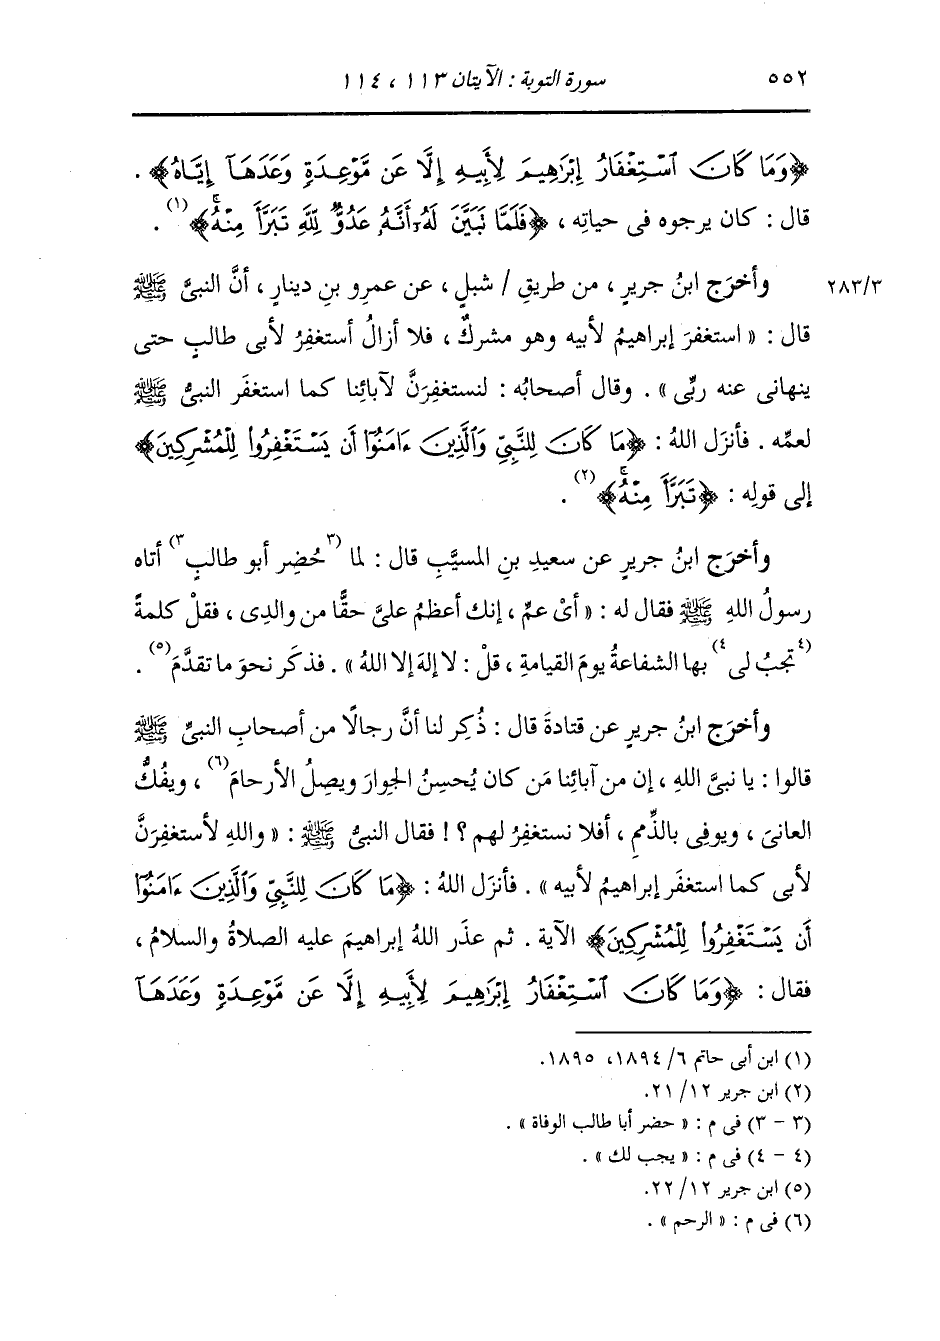 ٥٥٢
سورة التوبة : الآيتان ١١٣ ، ١١٤
﴿وَمَا كَانَ ٱسْتِغْفَارُ إِبْرَٰهِيمَ لِأَبِيهِ إِلَّا عَن مَّوْعِدَةٍ وَعَدَهَآ إِيَّاهُ﴾ .
قال : كان يرجوه فى حياتِه ، ﴿فَلَمَّا تَبَيَّنَ لَهُۥٓ أَنَّهُۥ عَدُوٌّ لِّلَّهِ تَبَرَّأَ مِنْهُۚ﴾(١) .
٢٨٣/٣
وأخرَج ابنُ جريرٍ ، من طريقِ / شبلٍ ، عن عمرِو بنِ دينارٍ ، أنَّ النبىَّ ﷺ
قال : « استغفرَ إبراهيمُ لأبيه وهو مشركٌ ، فلا أزالُ أستغفِرُ لأبى طالبٍ حتى
ينهانى عنه ربِّى » . وقال أصحابُه : لنستغفِرَنَّ لآبائِنا كما استغفَر النبىُّ ﷺ
لعمِّه . فأنزَل اللهُ : ﴿مَا كَانَ لِلنَّبِيِّ وَٱلَّذِينَ ءَامَنُوٓا۟ أَن يَسْتَغْفِرُوا۟ لِلْمُشْرِكِينَ﴾
إلى قولِه : ﴿تَبَرَّأَ مِنْهُۚ﴾(٢) .
وأخرَج ابنُ جريرٍ عن سعيدِ بنِ المسيَّبِ قال : لما (٣حُضِر أبو طالبٍ٣) أتاه
رسولُ اللهِ ﷺ فقال له : « أىْ عمِّ ، إنك أعظمُ علىَّ حقًّا من والدِى ، فقلْ كلمةً
(٤تجبُ لى٤) بها الشفاعةُ يومَ القيامةِ ، قلْ : لا إلهَ إلا اللهُ » . فذكَر نحوَ ما تقدَّمَ(٥) .
وأخرَج ابنُ جريرٍ عن قتادةَ قال : ذُكِر لنا أنَّ رجالًا من أصحابِ النبىِّ ﷺ
قالوا : يا نبىَّ اللهِ ، إن من آبائِنا مَن كان يُحسِنُ الجِوارَ ويصِلُ الأرحامَ(٦) ، ويفُكُّ
العانىَ ، ويوفِى بالذِّممِ ، أفلا نستغفِرُ لهم ؟! فقال النبىُّ ﷺ : « واللهِ لأستغفِرَنَّ
لأبى كما استغفَر إبراهيمُ لأبيه » . فأنزَل اللهُ : ﴿مَا كَانَ لِلنَّبِيِّ وَٱلَّذِينَ ءَامَنُوٓا۟
أَن يَسْتَغْفِرُوا۟ لِلْمُشْرِكِينَ﴾ الآية . ثم عذَر اللهُ إبراهيمَ عليه الصلاةُ والسلامُ ،
فقال : ﴿وَمَا كَانَ ٱسْتِغْفَارُ إِبْرَٰهِيمَ لِأَبِيهِ إِلَّا عَن مَّوْعِدَةٍ وَعَدَهَآ
(١) ابن أبى حاتم ٦/ ١٨٩٤، ١٨٩٥.
(٢) ابن جرير ١٢/ ٢١.
(٣ - ٣) فى م : « حضر أبا طالب الوفاة » .
(٤ - ٤) فى م : « يجب لك » .
(٥) ابن جرير ١٢/ ٢٢.
(٦) فى م : « الرحم » .